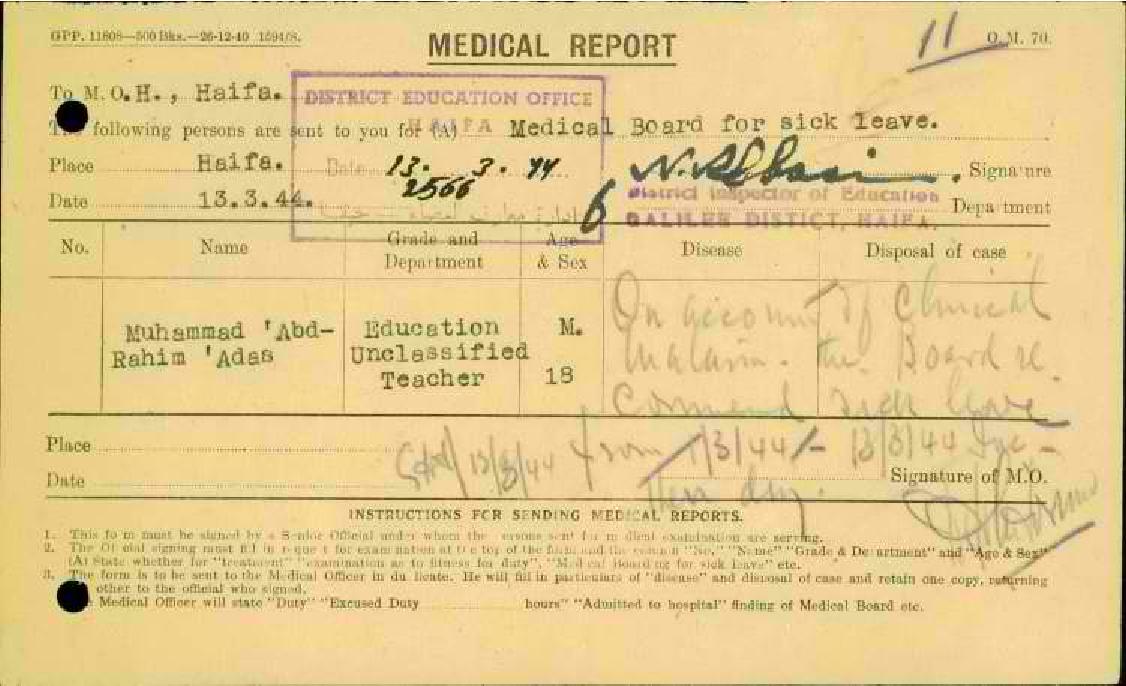 GPP. 11808—500 Bks.—26-12-40 1594/8.
11
O.M. 70.
MEDICAL REPORT
To M.O.H., Haifa.
DISTRICT EDUCATION OFFICE
HAIFA
The following persons are sent to you for (A) Medical Board for sick leave.
Place Haifa.
Date 13. 3. 44
2566
Signature
Date 13.3.44.
District Inspector of Education
GALILEE DISTICT, HAIFA.
Department
No. Name Grade and Department Age & Sex Disease Disposal of case
Muhammad 'Abd-
Rahim 'Adas
Education
Unclassified
Teacher
M.
18
On account of clinical
Malaria. the Board re
commend sick leave
from 1/3/44 - 13/3/44
Place
13/3/44
Date
day.
Signature of M.O.
INSTRUCTIONS FOR SENDING MEDICAL REPORTS.
1. This form must be signed by a Senior Official under whom the persons sent for medical examination are serving.
2. The Official signing must fill in request for examination at the top of the form and the column "No," "Name" "Grade & Department" and "Age & Sex"
(A) State whether for "treatment" "examination as to fitness for duty", "Medical Boarding for sick leave" etc.
3. The form is to be sent to the Medical Officer in duplicate. He will fill in particulars of "disease" and disposal of case and retain one copy, returning
other to the official who signed.
Medical Officer will state "Duty" "Excused Duty hours" "Admitted to hospital" finding of Medical Board etc.